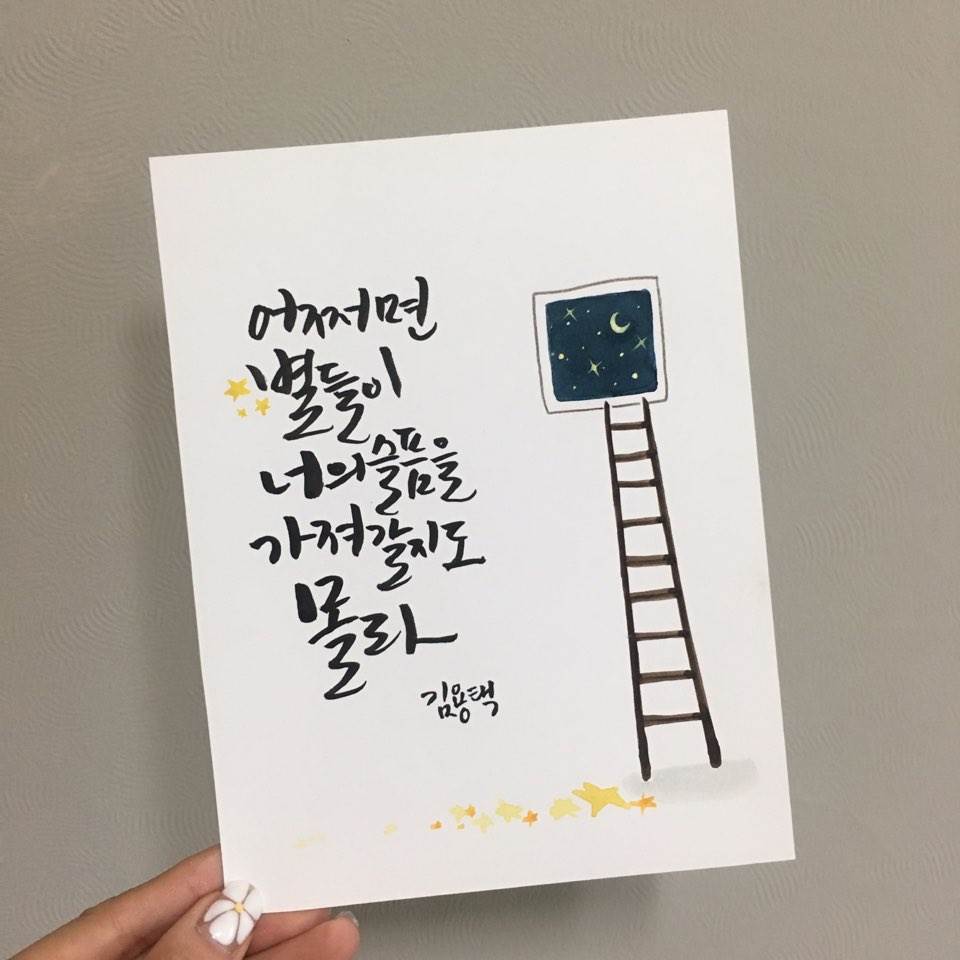 어쩌면
별들이
너의 슬픔을
가져갈지도
몰라
김용택